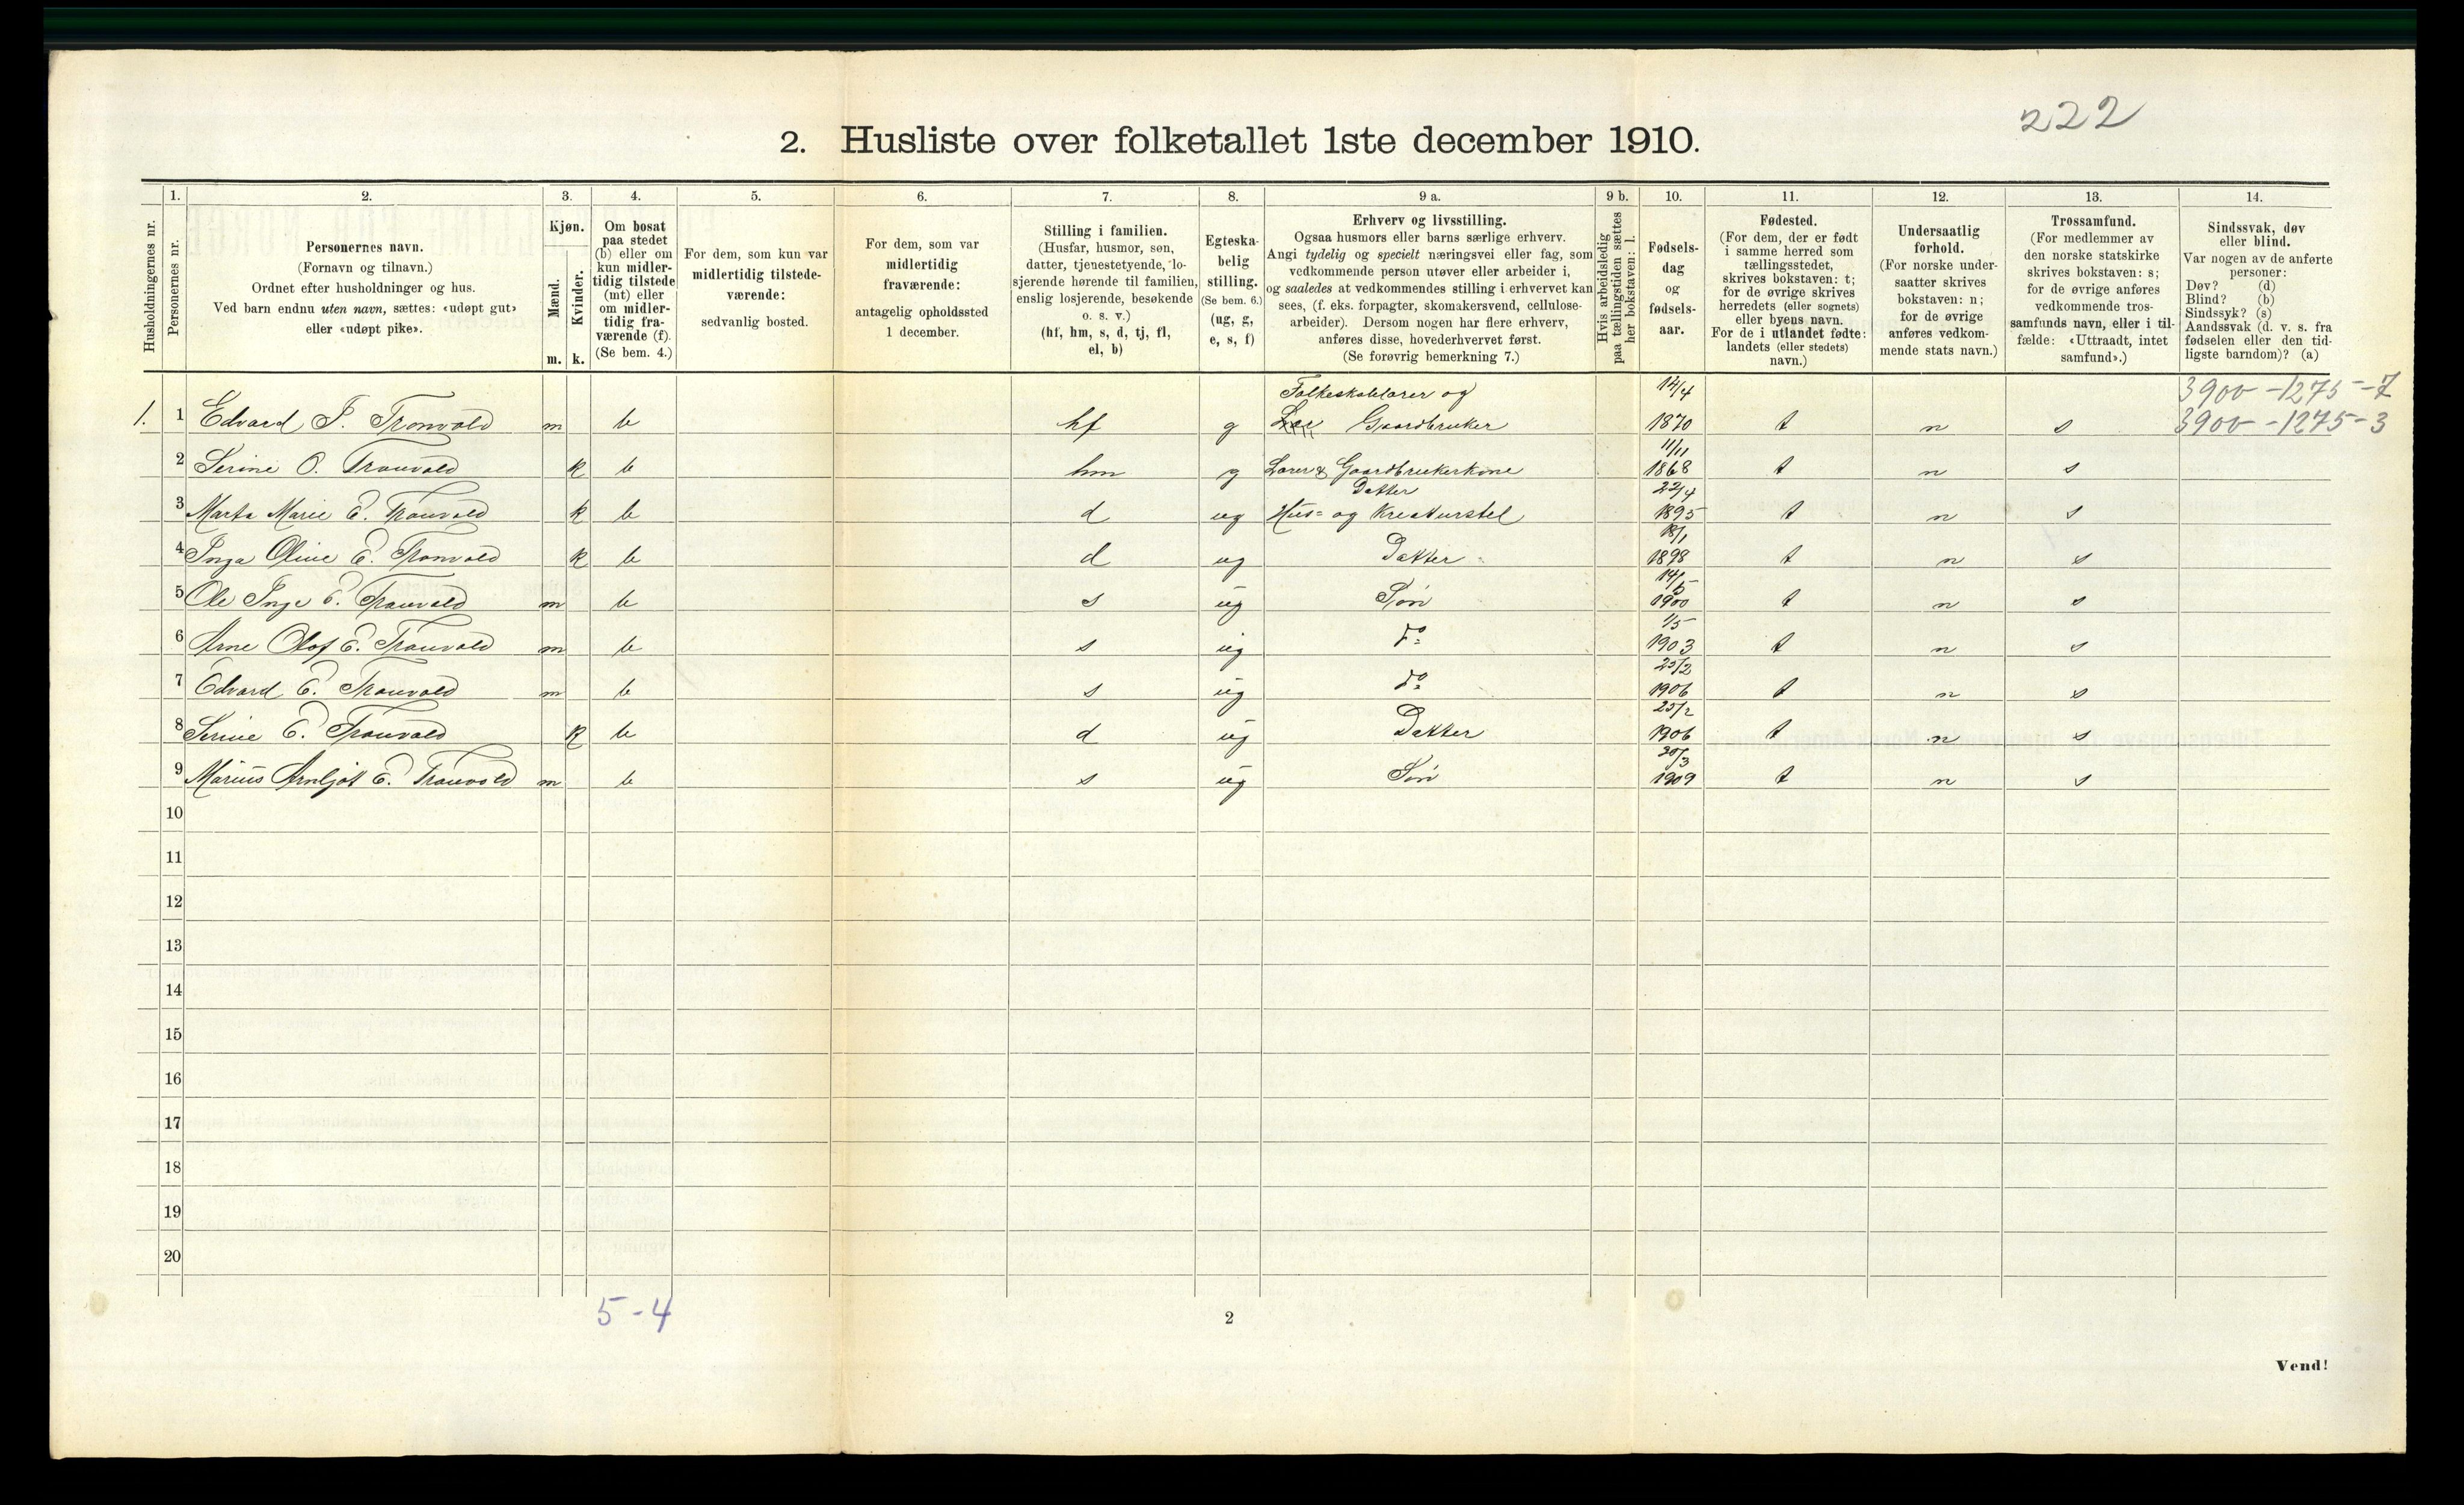 222
2. Husliste over folketallet 1ste december 1910.
Husholdningernes nr.
1. Personernes nr.
2. Personernes navn.
(Fornavn og tilnavn.)
Ordnet efter husholdninger og hus.
Ved barn endnu uten navn, sættes: «udøpt gut»
eller «udøpt pike».
3. Kjøn.
Mænd. m.
Kvinder. k.
4. Om bosat
paa stedet
(b) eller om
kun midler-
tidig tilstede
(mt) eller
om midler-
tidig fra-
værende (f).
(Se bem. 4.)
5. For dem, som kun var
midlertidig tilstede-
værende:
sedvanlig bosted.
6. For dem, som var
midlertidig
fraværende:
antagelig opholdssted
1 december.
7. Stilling i familien.
(Husfar, husmor, søn,
datter, tjenestetyende, lo-
sjerende hørende til familien,
enslig losjerende, besøkende
o. s. v.)
(hf, hm, s, d, tj, fl,
el, b)
8. Egteska-
belig
stilling.
(Se bem. 6.)
(ug, g,
e, s, f)
9 a. Erhverv og livsstilling.
Ogsaa husmors eller barns særlige erhverv.
Angi tydelig og specielt næringsvei eller fag, som
vedkommende person utøver eller arbeider i,
og saaledes at vedkommendes stilling i erhvervet kan
sees, (f. eks. forpagter, skomakersvend, cellulose-
arbeider). Dersom nogen har flere erhverv,
anføres disse, hovederhvervet først.
(Se forøvrig bemerkning 7.)
9 b. Hvis arbeidsledig
paa tællingstiden sættes
her bokstaven: l.
10. Fødsels-
dag
og
fødsels-
aar.
11. Fødested.
(For dem, der er født
i samme herred som
tællingsstedet,
skrives bokstaven: t;
for de øvrige skrives
herredets (eller sognets)
eller byens navn.
For de i utlandet fødte:
landets (eller stedets)
navn.)
12. Undersaatlig
forhold.
(For norske under-
saatter skrives
bokstaven: n;
for de øvrige
anføres vedkom-
mende stats navn.)
13. Trossamfund.
(For medlemmer av
den norske statskirke
skrives bokstaven: s;
for de øvrige anføres
vedkommende tros-
samfunds navn, eller i til-
fælde: «Uttraadt, intet
samfund».)
14. Sindssvak, døv
eller blind.
Var nogen av de anførte
personer:
Døv? (d)
Blind? (b)
Sindssyk? (s)
Aandssvak (d. v. s. fra
fødselen eller den tid-
ligste barndom)? (a)
Folkeskolelærer og 14/4 3900-1275-7
1. 1 Edvard P. Tronvold m b hf g Gaardbruker 1870 t n s 3900-1275-3
11/11
2 Serine O. Tronvold k b hm g Lærer & Gaardbrukerkone 1868 t n s
Datter 22/4
3 Marta Marie E. Tronvold k b d ug Hus= og Kreaturstel 1895 t n s
18/1
4 Inga Oline E. Tronvold k b d ug Datter 1898 t n s
14/5
5 Ole Inge E. Tronvold m b s ug Søn 1900 t n s
1/5
6 Arne Olaf E. Tronvold m b s ug do 1903 t n s
25/2
7 Edvard E. Tronvold m b s ug do 1906 t n s
25/2
8 Serine E. Tronvold k b d ug Datter 1906 t n s
30/3
9 Marius Arnljot E. Tronvold m b s ug Søn 1909 t n s
10
11
12
13
14
15
16
17
18
19
20
5-4
2
Vend!